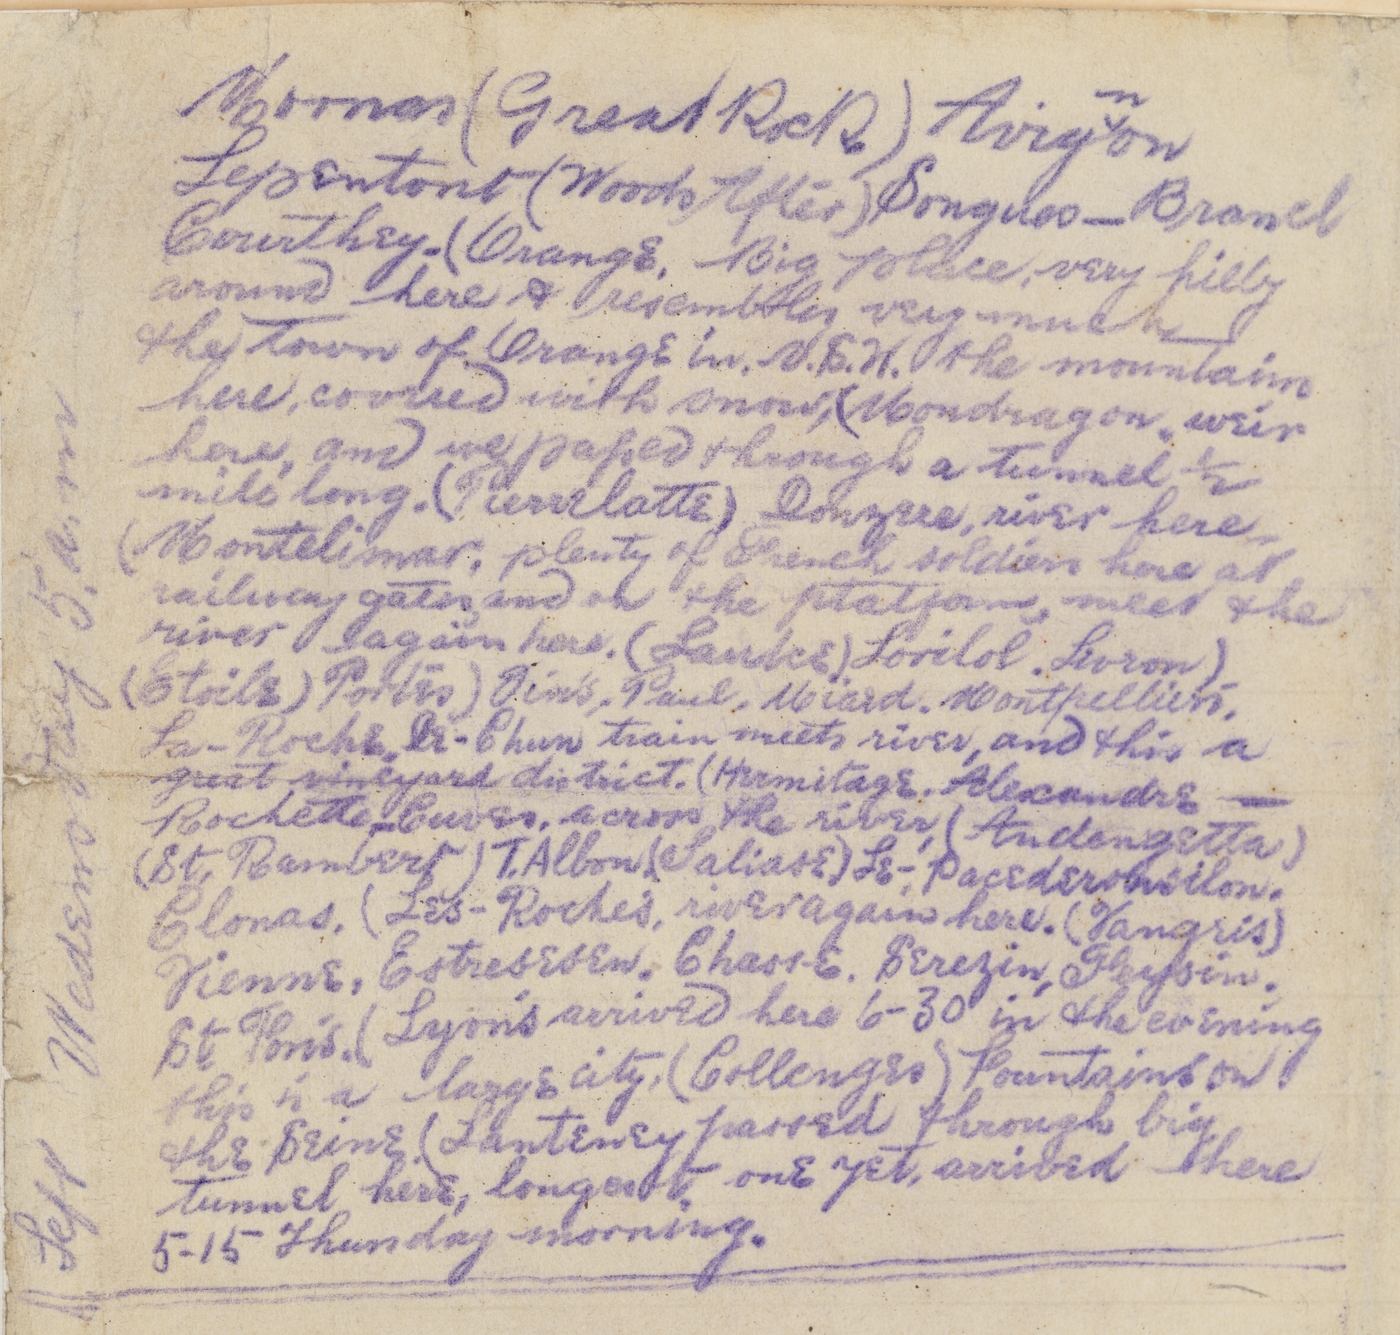 Mornas (Great Rock) Avignon
Lepontont (Woods After) Songues - Branch
Courthey. (Orange, Big place, very hilly
around here & resembles very much
the town of Orange in N.S.W. the mountains
here, covered with snow, (Mondragon. weir
here, and we passed through a tunnel 1/2
mile long. (Pierrelatte) Donzere, river here,
(Montelimar, plenty of French soldiers here at
railway gates and on the platform, meet the
river again here. (Laulce) Lorilol. Livron)
(Etoile) Portes) Vins, Paul. Miard. Montpelliers.
La-Roche, De-Chun train meets river, and this a
great vineyard district. (Hermitage. Alexandre -
Rochette-Cuves, across the river, (Andengetta)
(St. Rambert) T. Albon. (Saliase) Le-,
Clonas. (Les-Roches, river again here. (Vangris)
Vienne, Estresesen. Chasse. Serezin, Feysin.
St Fons. (Lyons arrived here 6-30 in the evening
this is a large city, (Collenges) Fountains on
the Seine. (Lanteney passed through big
tunnel here, longest one yet, arrived there
5-15 Thursday morning.
Left Wednesday 5. a.m